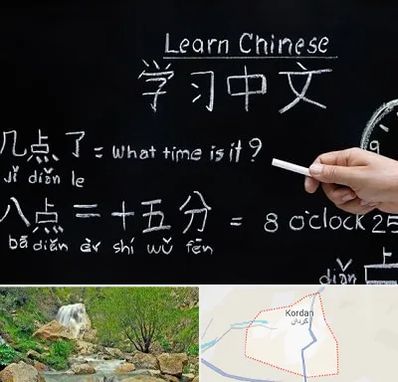 Learn Chinese
学习中文
几点了 = What time is it?
Jǐ diǎn le
9
八点二十五分 = 8 o'clock 25
bā diǎn èr shí wǔ fēn
上
diǎn
Kordan
کردان